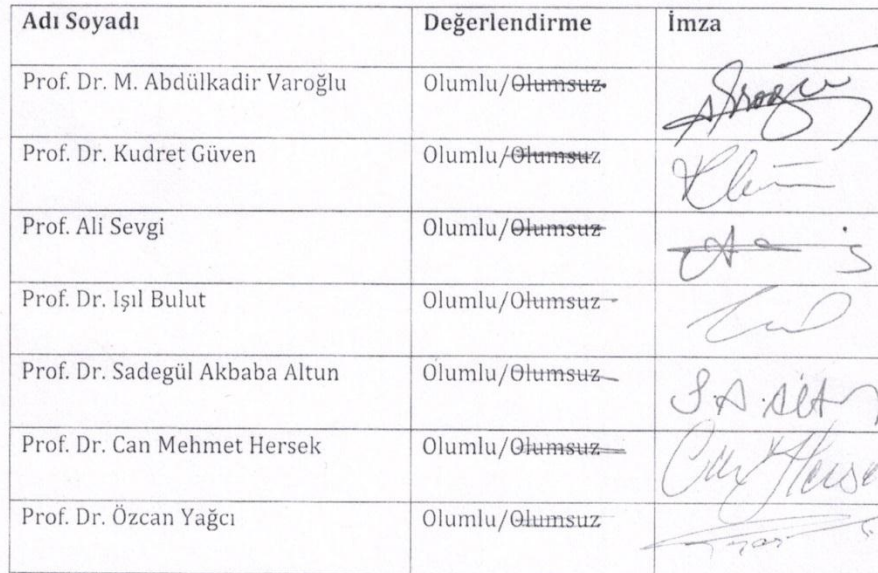 Adı Soyadı Değerlendirme İmza
Prof. Dr. M. Abdülkadir Varoğlu Olumlu/Olumsuz
Prof. Dr. Kudret Güven Olumlu/Olumsuz
Prof. Ali Sevgi Olumlu/Olumsuz
Prof. Dr. Işıl Bulut Olumlu/Olumsuz
Prof. Dr. Sadegül Akbaba Altun Olumlu/Olumsuz S.A.Altun
Prof. Dr. Can Mehmet Hersek Olumlu/Olumsuz
Prof. Dr. Özcan Yağcı Olumlu/Olumsuz